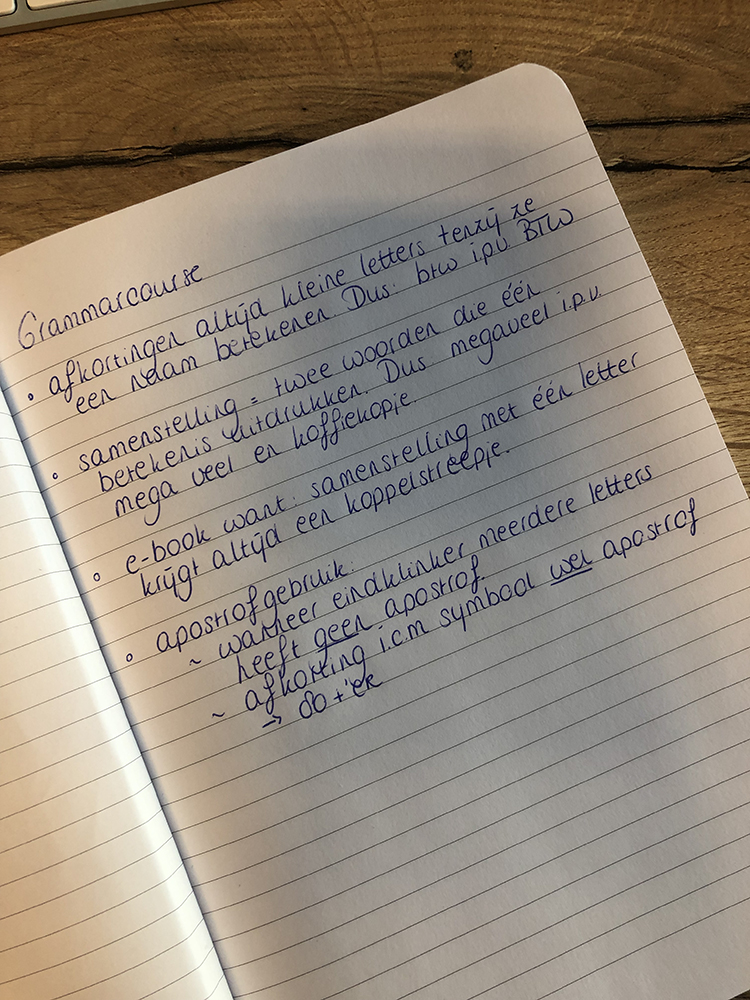 Grammarcourse
• afkortingen altijd kleine letters tenzij ze
een naam betekenen. Dus: btw i.p.v. BTW
• samenstelling = twee woorden die één
betekenis uitdrukken. Dus megaveel i.p.v.
mega veel en koffiekopje
• e-book want: samenstelling met één letter
krijgt altijd een koppelstreepje.
• apostrofgebruik:
~ wanneer eindklinker meerdere letters
heeft geen apostrof.
~ afkorting i.c.m symbool wel apostrof
→ 80+'er